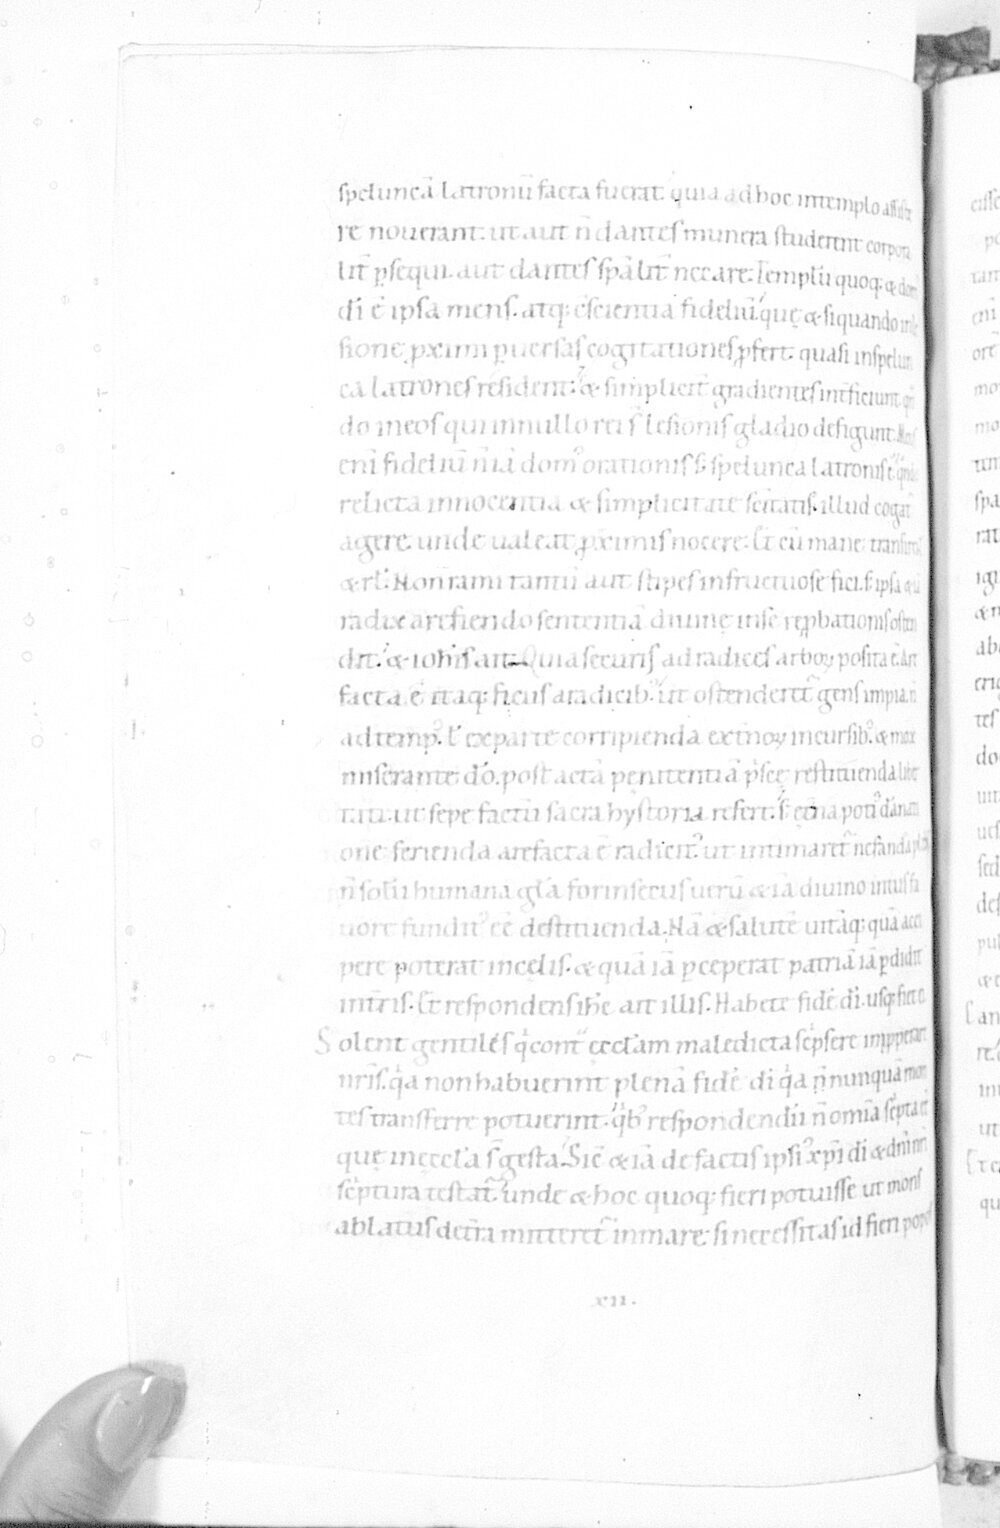 speluncā latronū facta fuerat quia ad hoc in templo assiste
re nouerant. ut aut ñ dantes munera studerent corpora
lit̄ p̱sequi. aut dantes spālit̄ necare. Templū quoq; & dom᷒
di ē ipsa mens. atq; c̄scientia fideliū. quę & siquando in lę
sione p̱ximi puersas cogitationes p̱fert. quasi in spelun
ca latrones resident. & simplicit̄ gradientes int̄ficiunt. qn̄
do in eos qui in nullo rei s̄ lesionis gladio defigunt. Mens
enī fideliū ñ iā dom᷒ orationis s; spelunca latronis ē. qn̄do
relicta innocentia & simplicitate sc̄itatis. illud cogat̄
agere. unde ualeat p̱ximis nocere. Et cū mane transirent
& rl̄. Non rami tantū aut stipes infructuose fici. s; ipsa & iā
radix arefiendo sententiā diuinę in se rep̱bationis osten
dit. & ioh̄is ait. Quia securis ad radices arboꝝ posita ē. Are
facta ē itaq; ficus a radicib᷒. ut ostenderet̄ gens impia. ñ
ad temp᷒ ł ex parte corripienda ext̄noꝝ incursib᷒. & mox
miserante dō. post actā penitentiā p̄sce restituenda liber
tati. ut sepe factū sacra hystoria refert. s; ęt̄na poti᷒ dānati
one ferienda arefacta ē radicit᷒. ut intimaret̄ nefanda plebs
ñ solū humana gl̄a forinsecus uerū & iā diuino intus fa
uore fundit᷒ eē destituenda. Nā & salutē uitāq; quā acci
pere poterat in cęlis. & quā iā p̱ceperat patriā iā p̱didit
in t̄ris. Et respondens ih̄c ait illis. Habete fidē dī. usq; fiet ei.
Solent gentiles q̄ cont̄ ęccl̄am maledicta sc̄psere imp̱perare
nr̄is. q̄a non habuerint plenā fidē dī q̄a ñ nunquā mon
tes transferre potuerint. q̄b᷒ respondendū ñ om̄ia sc̄pta eē
quę in ęccl̄a s̄ gesta. Sic̄ & iā de factis ipsi᷒ xp̄i dī & dn̄i nr̄i
sc̄ptura testat̄. unde & hoc quoq; fieri potuisse ut mons
ablatus de t̄ra mitteret̄ in mare. si necessitas id fieri popos
xii.